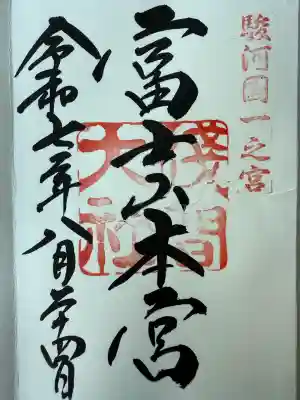 駿河國一之宮
富士山本宮
淺間大社
令和七年八月二十四日